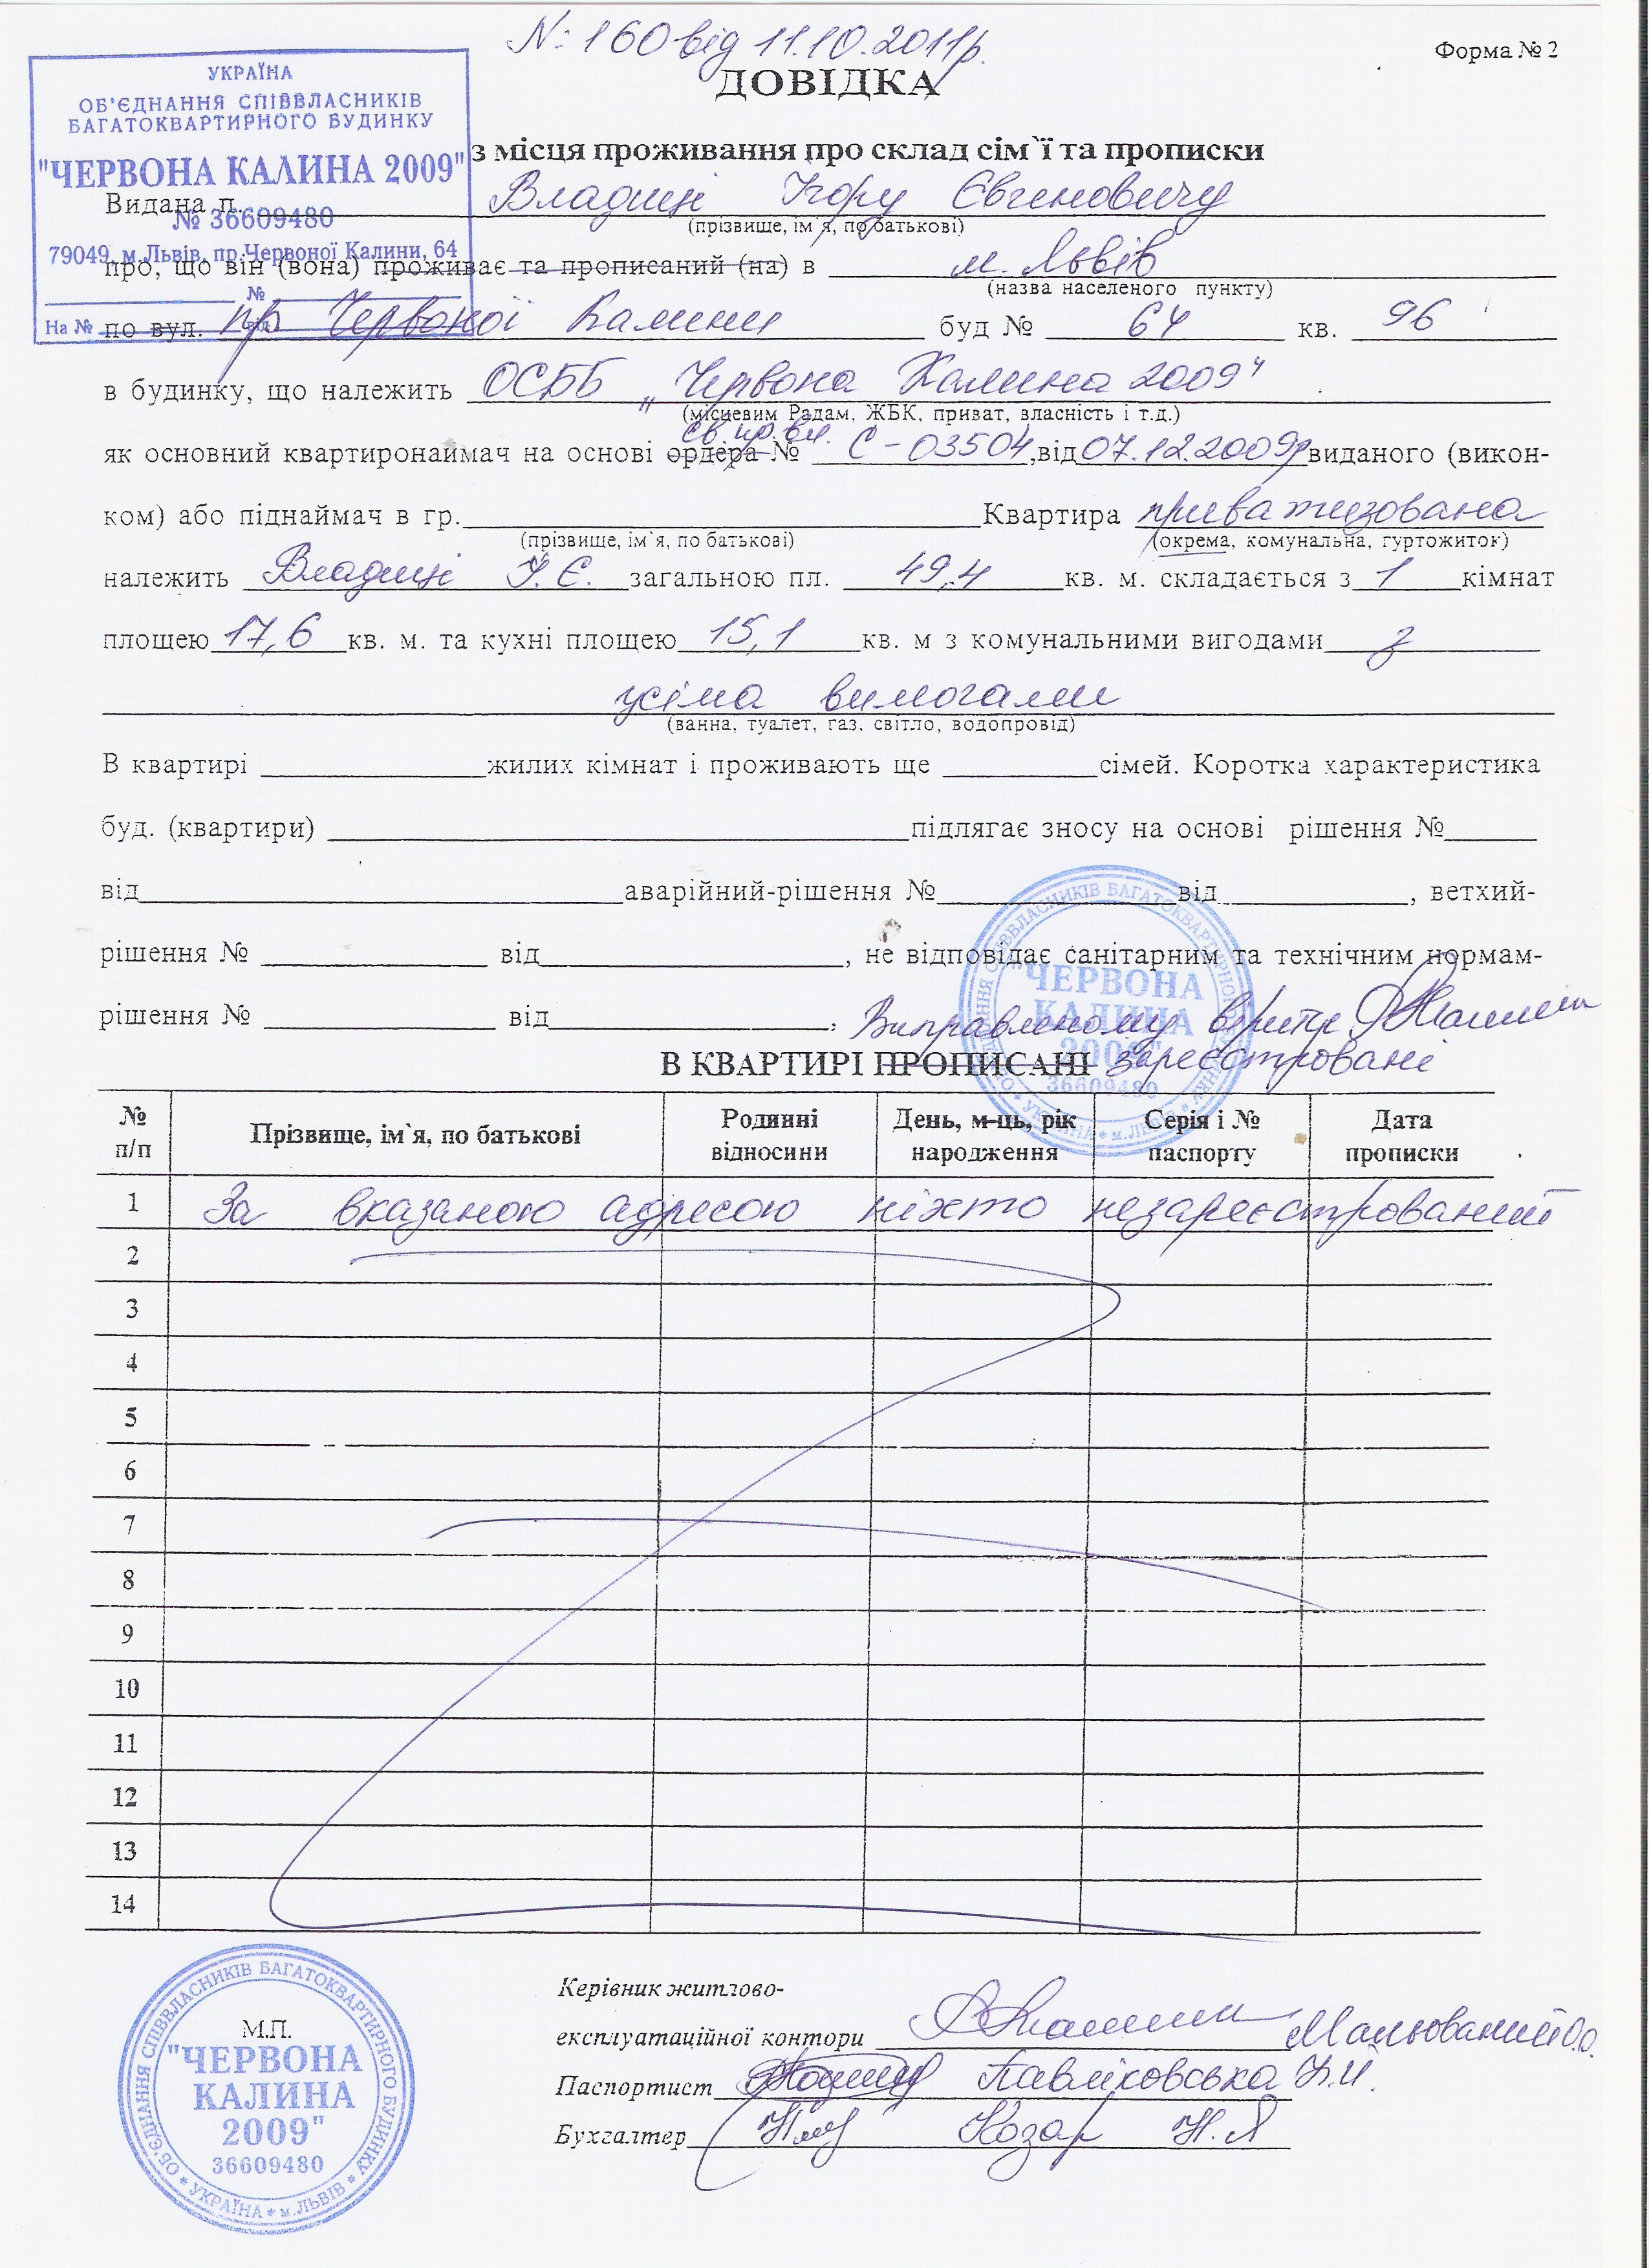 N: 160 від 11.10.2011р.
Форма № 2
УКРАЇНА
ОБ'ЄДНАННЯ СПІВВЛАСНИКІВ
БАГАТОКВАРТИРНОГО БУДИНКУ
"ЧЕРВОНА КАЛИНА 2009"
№ 36609480
79049, м.Львів, пр.Червоної Калини, 64
№
На № від
ДОВІДКА
з місця проживання про склад сім`ї та прописки
Видана п. Владиці Ігору Євгеновичу
(прізвище, ім`я, по батькові)
про, що він (вона) проживає та прописаний (на) в м. Львів
(назва населеного пункту)
по вул. пр Червоної Калини буд № 64 кв. 96
в будинку, що належить ОСББ „Червона Калина 2009"
(місцевим Радам, ЖБК, приват, власність і т.д.)
св. пр. вл.
як основний квартиронаймач на основі ордера № С-03504, від 07.12.2009р виданого (викон-
ком) або піднаймач в гр. Квартира приватизована
(прізвище, ім`я, по батькові) (окрема, комунальна, гуртожиток)
належить Владиці І. Є. загальною пл. 49,4 кв. м. складається з 1 кімнат
площею 17,6 кв. м. та кухні площею 15,1 кв. м з комунальними вигодами з
усіма вимогами
(ванна, туалет, газ, світло, водопровід)
В квартирі жилих кімнат і проживають ще сімей. Коротка характеристика
буд. (квартири) підлягає зносу на основі рішення №
від аварійний-рішення № від , ветхий-
рішення № від , не відповідає санітарним та технічним нормам-
рішення № від , Виправленому вірити
В КВАРТИРІ ПРОПИСАНІ зареєстровані
ОБ'ЄДНАННЯ СПІВВЛАСНИКІВ БАГАТОКВАРТИРНОГО БУДИНКУ * УКРАЇНА * м.ЛЬВІВ *
"ЧЕРВОНА
КАЛИНА
2009"
36609480
№ п/п Прізвище, ім`я, по батькові Родинні відносини День, м-ць, рік народження Серія і № паспорту Дата прописки
1 За вказаною адресою ніхто незареєстрований
2
3
4
5
6
7
8
9
10
11
12
13
14
Керівник житлово-
експлуатаційної контори Мальований О.О.
Паспортист Павліковська Н.Й.
Бухгалтер Козар Н.Я
М.П.
ОБ'ЄДНАННЯ СПІВВЛАСНИКІВ БАГАТОКВАРТИРНОГО БУДИНКУ * УКРАЇНА * м.ЛЬВІВ *
"ЧЕРВОНА
КАЛИНА
2009"
36609480